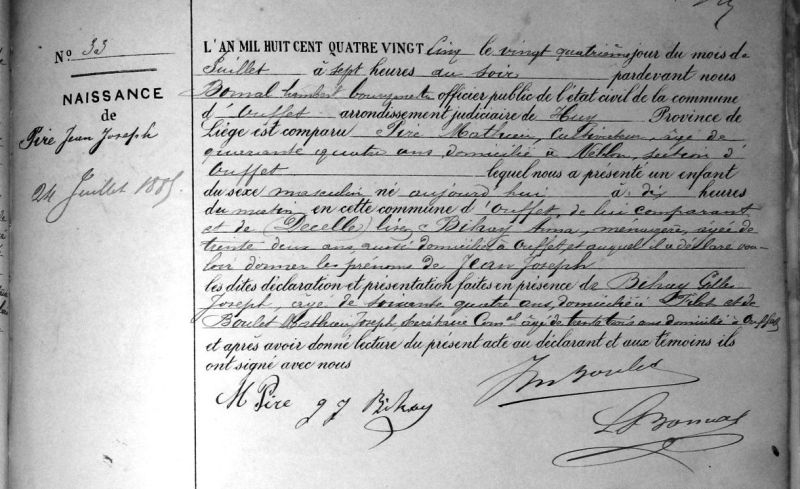 N° 33
NAISSANCE
de
Pire Jean Joseph
24 Juillet 1885
L'AN MIL HUIT CENT QUATRE VINGT cinq le vingt quatrième jour du mois de
Juillet à sept heures du soir pardevant nous
Bomal Lambert bourgmestre officier public de l'état civil de la commune
d'Ouffet arrondissement judiciaire de Huy Province de
Liège est comparu Pire Mathieu, cultivateur, âgé de
quarante quatre ans domicilié à section d'
Ouffet lequel nous a présenté un enfant
du sexe masculin né aujourd'hui à dix heures
du matin en cette commune d'Ouffet, de lui comparant
et de (Decelle) lisez Bihay Anna, ménagère, âgée de
trente deux ans, aussi domiciliée à Ouffet et auquel il a déclaré vou-
loir donner les prénoms de Jean Joseph
les dites déclaration et présentation faites en présence de Bihay Gilles
Joseph, âgé de soixante quatre ans, domicilié à et de
Boulet Mathieu Joseph secrétaire Com.al âgé de trente trois ans domicilié à Ouffet
et après avoir donné lecture du présent acte au déclarant et aux témoins ils
ont signé avec nous
M Pire g J Bihay JM Boulet
L Bomal